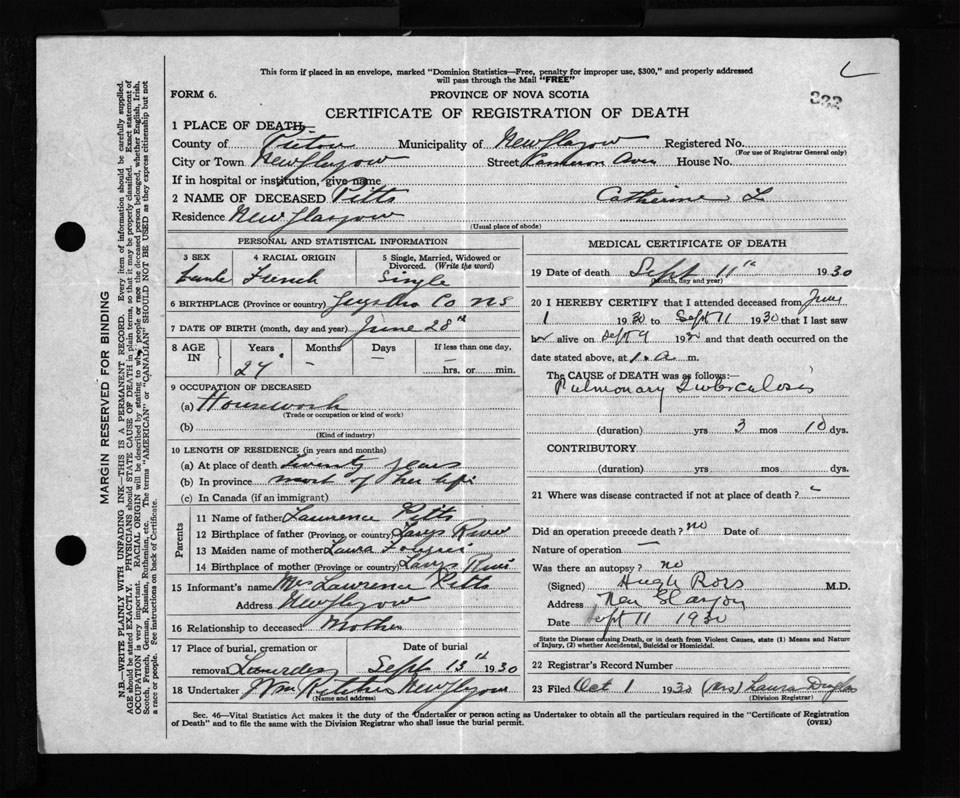 This form if placed in an envelope, marked "Dominion Statistics—Free, penalty for improper use, $300," and properly addressed
will pass through the Mail "FREE"
FORM 6. PROVINCE OF NOVA SCOTIA
CERTIFICATE OF REGISTRATION OF DEATH
1 PLACE OF DEATH—
County of Pictou Municipality of New Glasgow Registered No.
(For use of Registrar General only)
City or Town New Glasgow Street House No.
If in hospital or institution, give name
2 NAME OF DECEASED Pitts Catherine L
Residence New Glasgow
(Usual place of abode)
PERSONAL AND STATISTICAL INFORMATION
3 SEX 4 RACIAL ORIGIN 5 Single, Married, Widowed or Divorced. (Write the word)
French Single
6 BIRTHPLACE (Province or country) Co NS
7 DATE OF BIRTH (month, day and year) June 28th
8 AGE IN Years Months Days If less than one day,
24 — — hrs. or min.
9 OCCUPATION OF DECEASED
(a) Housework
(Trade or occupation or kind of work)
(b)
(Kind of industry)
10 LENGTH OF RESIDENCE (in years and months)
(a) At place of death twenty years
(b) In province most of her life
(c) In Canada (if an immigrant)
Parents
11 Name of father Lawrence Pitts
12 Birthplace of father (Province or country) Larys River
13 Maiden name of mother Laura
14 Birthplace of mother (Province or country) Larys River
15 Informant's name Mrs Lawrence Pitts
Address New Glasgow
16 Relationship to deceased Mother
17 Place of burial, cremation or removal Date of burial
Lourdes Sept 13th 1930
18 Undertaker New Glasgow
(Name and address)
MEDICAL CERTIFICATE OF DEATH
19 Date of death Sept 11th 1930
(Month, day and year)
20 I HEREBY CERTIFY that I attended deceased from June
1 1930 to Sept 11 1930 that I last saw
her alive on Sept 9 1930 and that death occurred on the
date stated above, at 1. a m.
The CAUSE OF DEATH was as follows:
Pulmonary Tuberculosis
(duration) yrs 3 mos 10 dys.
CONTRIBUTORY
(duration) yrs mos dys.
21 Where was disease contracted if not at place of death?
Did an operation precede death? no Date of
Nature of operation —
Was there an autopsy? no
(Signed) Hugh Ross M.D.
Address New Glasgow
Date Sept 11 1930
State the Disease causing Death, or in death from Violent Causes, state (1) Means and Nature
of Injury, (2) whether Accidental, Suicidal or Homicidal.
22 Registrar's Record Number
23 Filed Oct 1 1930 (Mrs) Laura Douglas
(Division Registrar)
Sec. 46—Vital Statistics Act makes it the duty of the Undertaker or person acting as Undertaker to obtain all the particulars required in the "Certificate of Registration
of Death" and to file the same with the Division Registrar who shall issue the burial permit. (OVER)
MARGIN RESERVED FOR BINDING
N.B.—WRITE PLAINLY WITH UNFADING INK—THIS IS A PERMANENT RECORD. Every item of information should be carefully supplied.
AGE should be stated EXACTLY. PHYSICIANS should STATE CAUSE OF DEATH in plain terms, so that it may be properly classified. Exact statement of
OCCUPATION is very important. RACIAL ORIGIN will be described by stating to what people or race the deceased person belonged, whether English, Irish,
Scotch, French, German, Russian, Ruthenian, etc. The terms "AMERICAN" or "CANADIAN" SHOULD NOT BE USED as they express citizenship but not
a race or people. See instructions on back of Certificate.